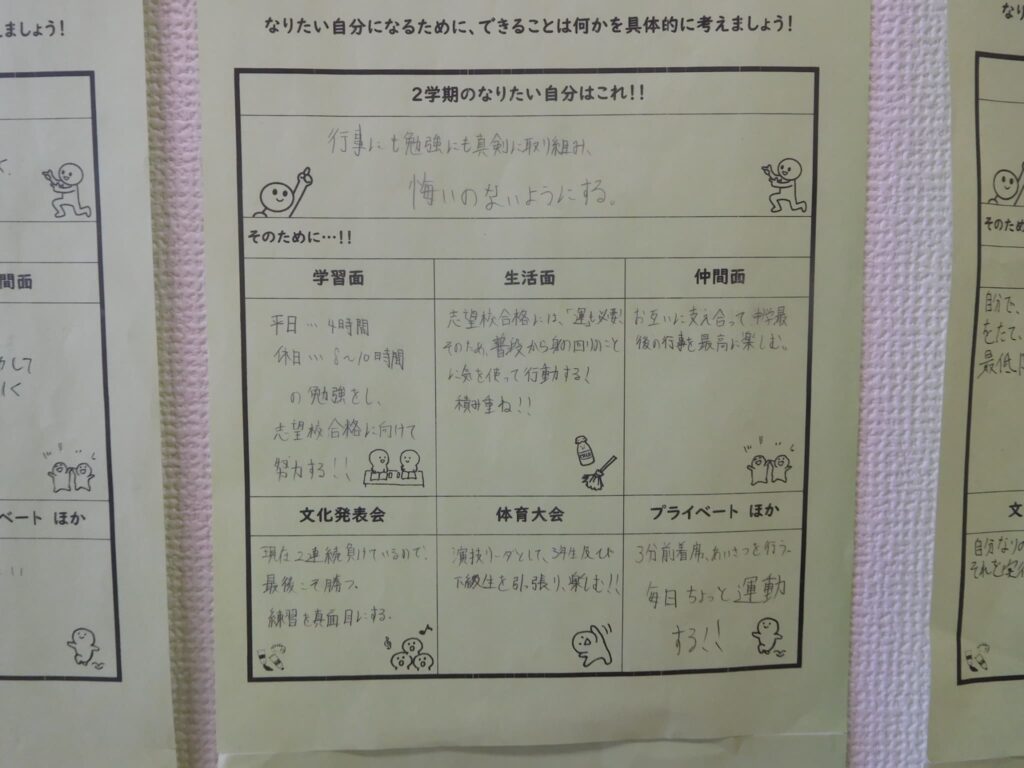 なりたい自分になるために、できることは何かを具体的に考えましょう!
2学期のなりたい自分はこれ!!
行事にも勉強にも真剣に取り組み、
悔いのないようにする。
そのために…!!
学習面
平日… 4時間
休日… 8～10時間
の勉強をし、
志望校合格に向けて
努力する!!
生活面
志望校合格には、「運も必要!
そのため、普段から身の回りのこと
に気を使って行動する!
積み重ね!!
仲間面
お互いに支え合って中学最
後の行事を最高に楽しむ。
文化発表会
現在2連続負けているので、
最後こそ勝つ。
練習を真面目にする.
体育大会
演技リーダとして、3年生及び
下級生を引っ張り、楽しむ!!
プライベート ほか
3分前着席、あいさつを行う。
毎日ちょっと運動
する!!
ましょう!
間面
かして
いく
ベート ほか
なり
そのため
自分で、
をたて、
最低
文
自分なりの
それを実行